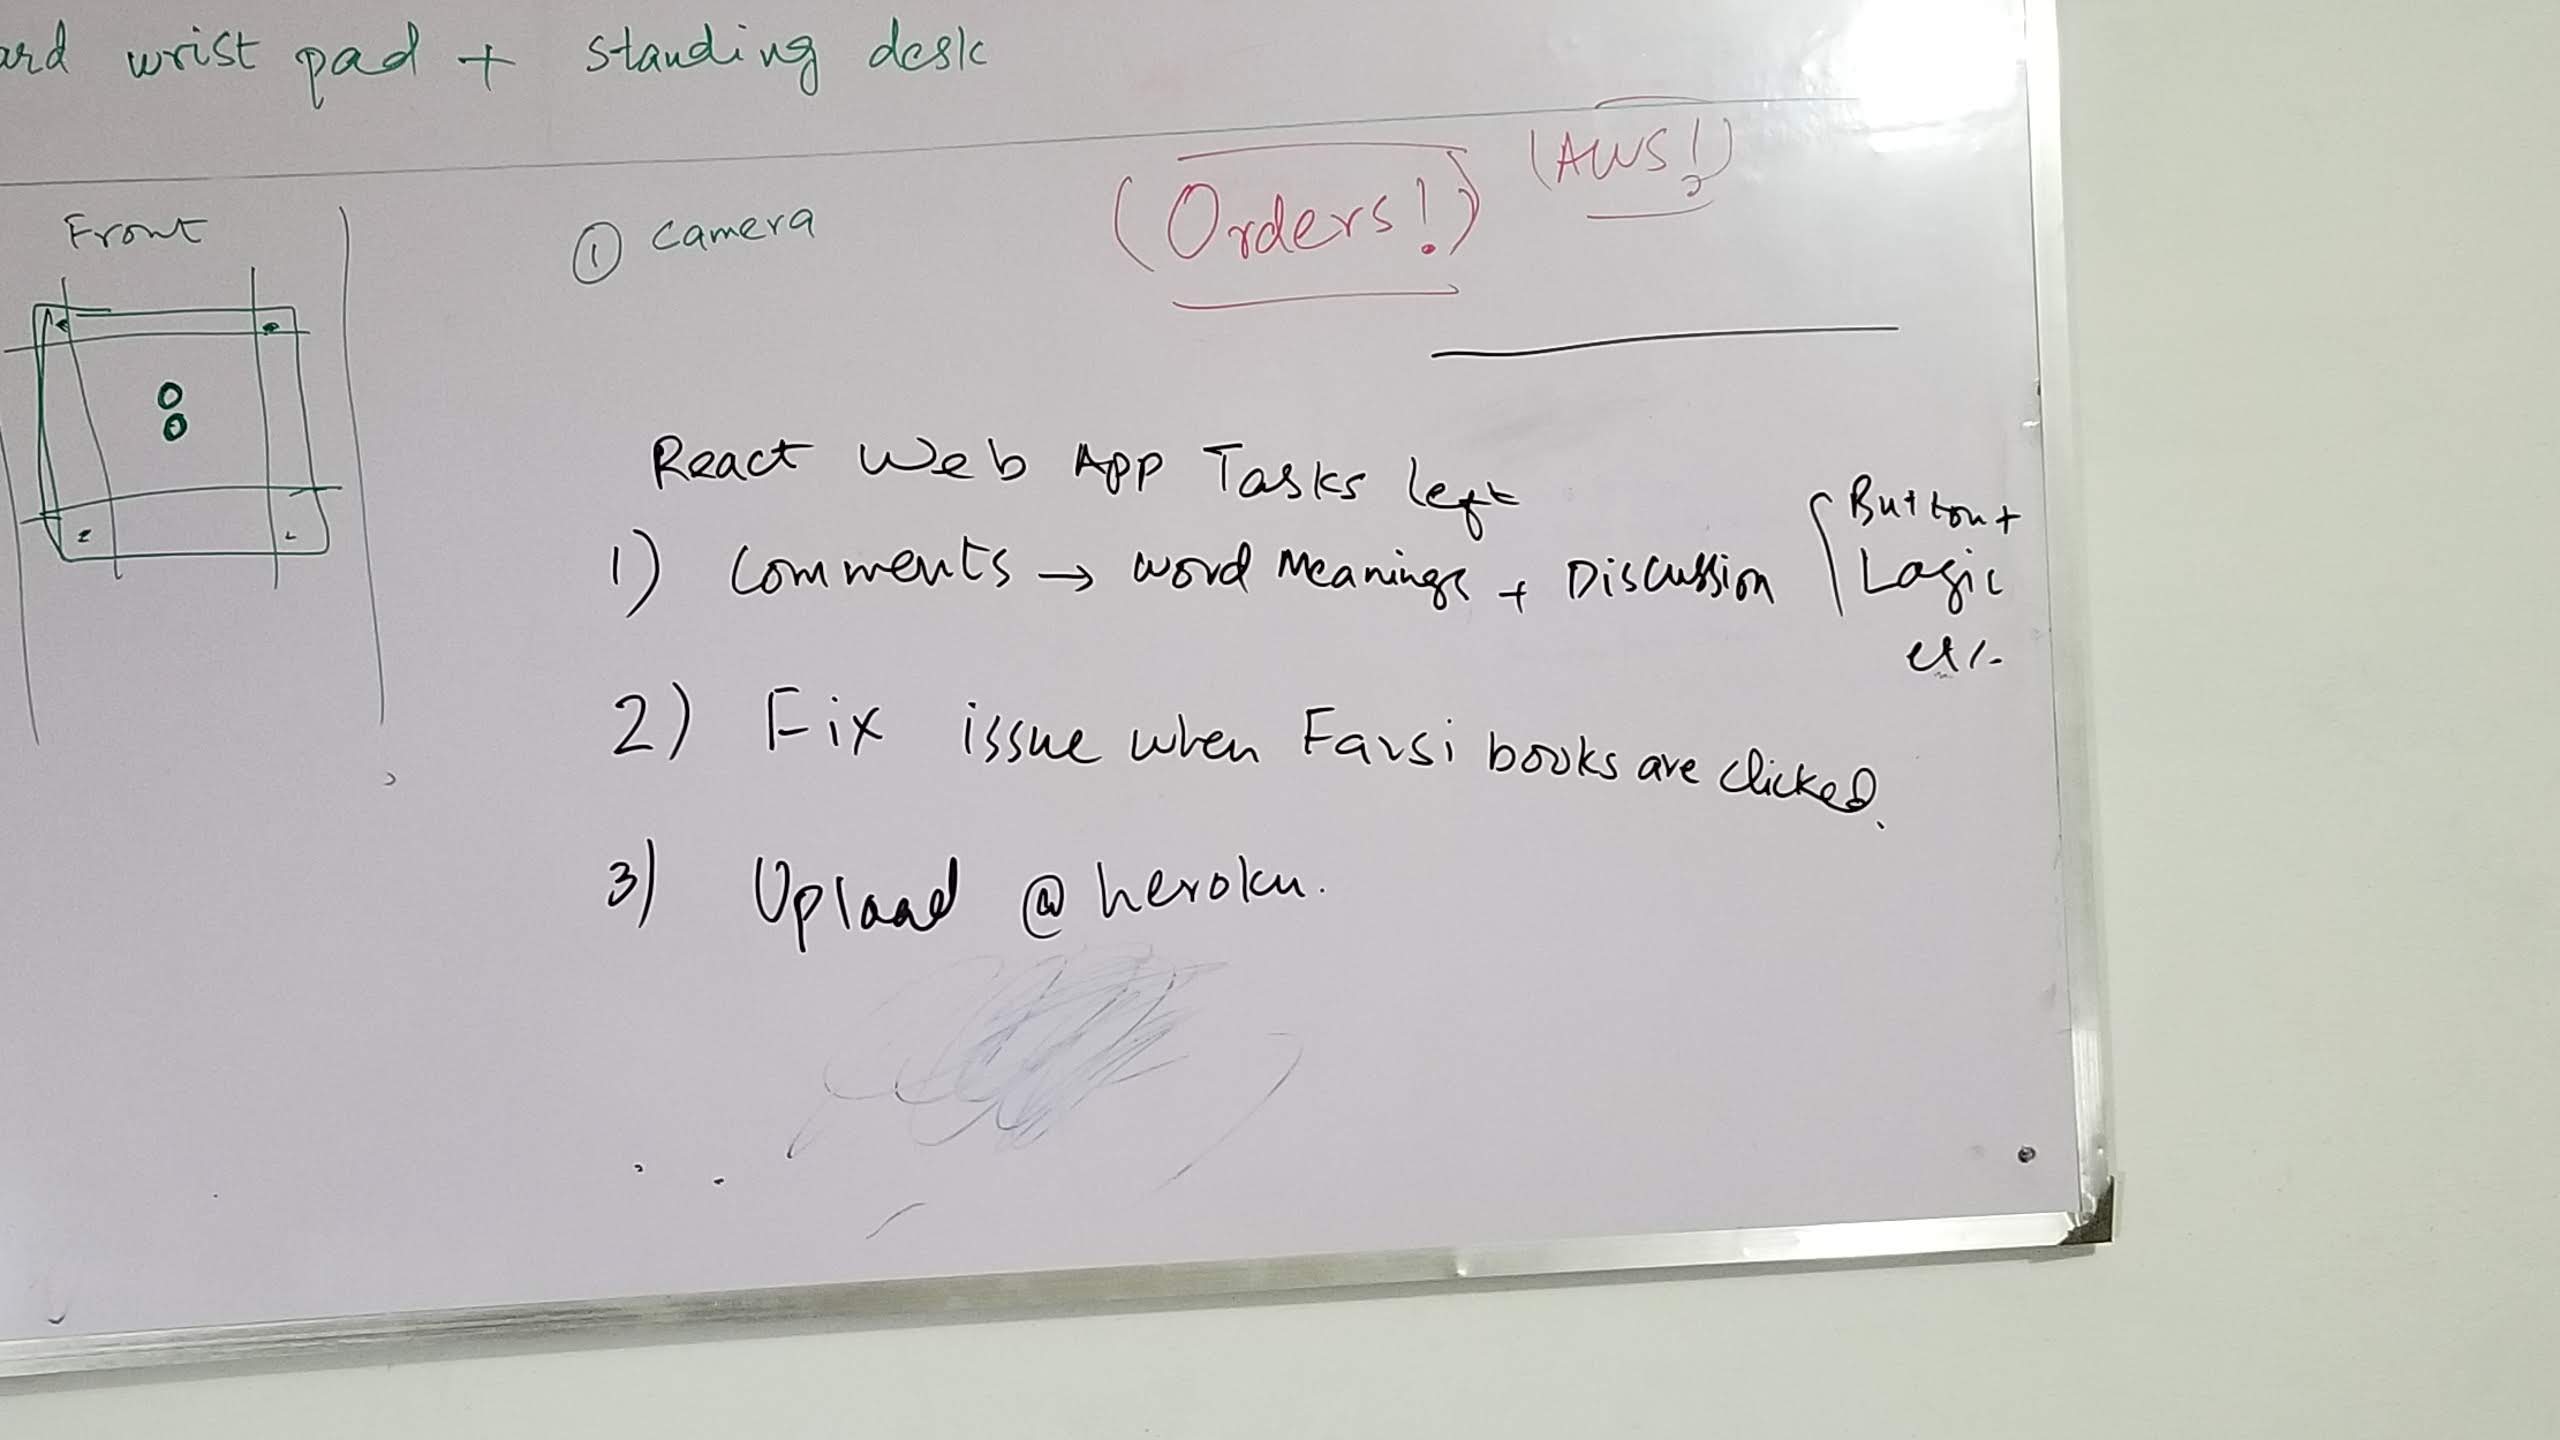 ard wrist pad + standing desk
Front
① camera
(Orders!)
(AWS!)
React Web App Tasks left
1) Comments → word Meanings + Discussion { Button +
Logic
etc.
2) Fix issue when Farsi books are clicked.
3) Upload @ heroku.